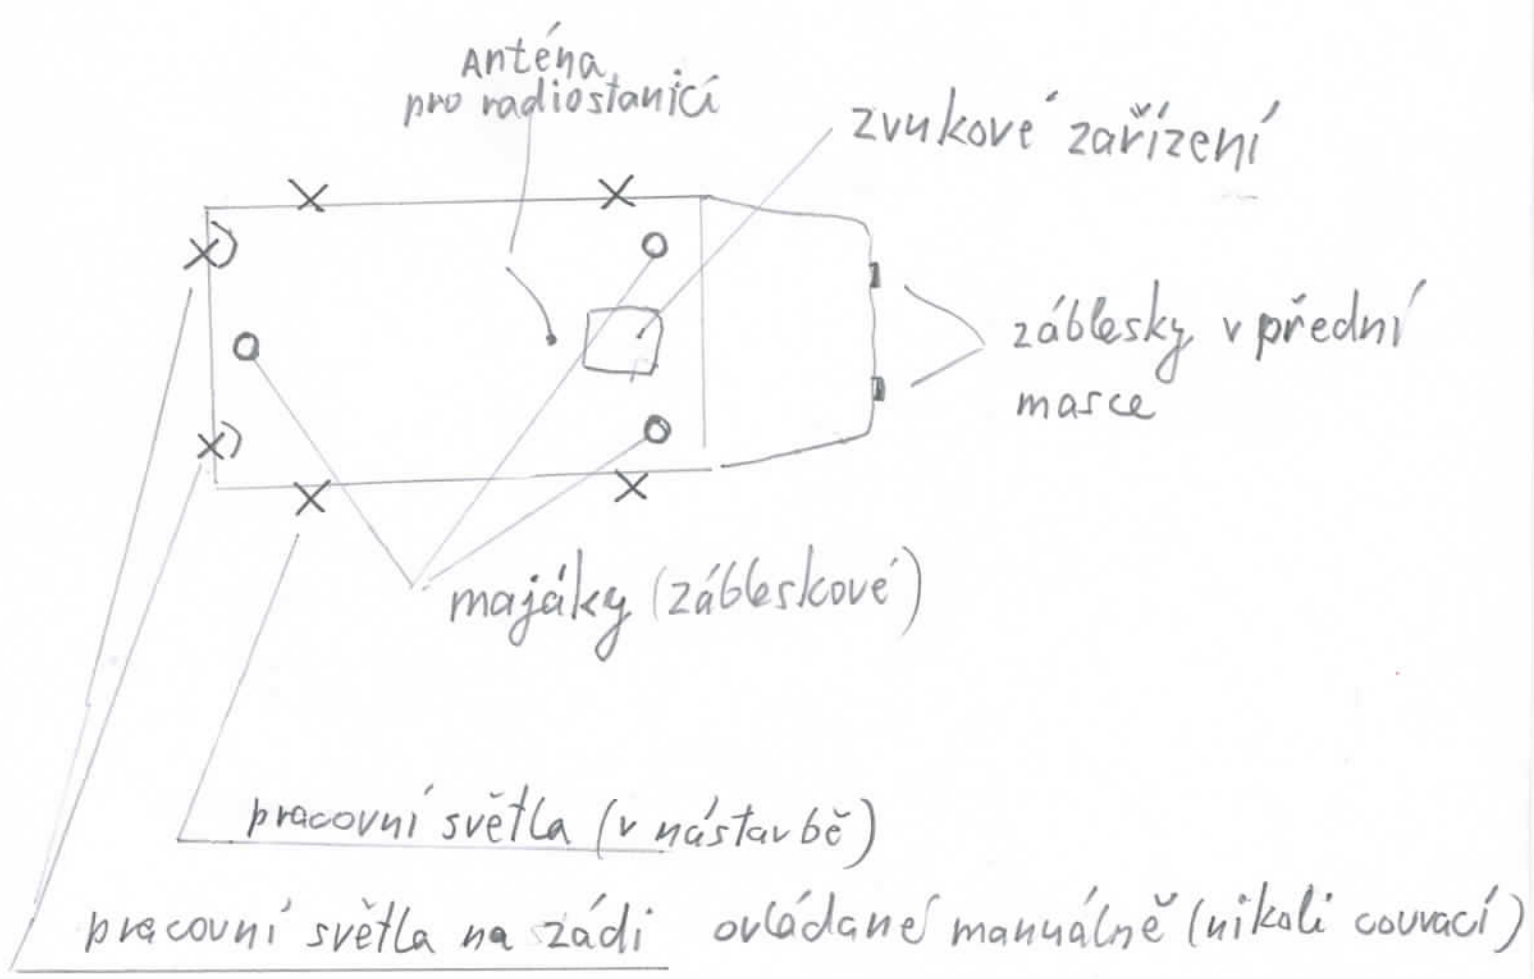 Anténa
pro radiostanici
zvukové zařízení
záblesky v přední
masce
majáky (zábleskové)
pracovní světla (v nástavbě)
pracovní světla na zádi ovládané manuálně (nikoli couvací)